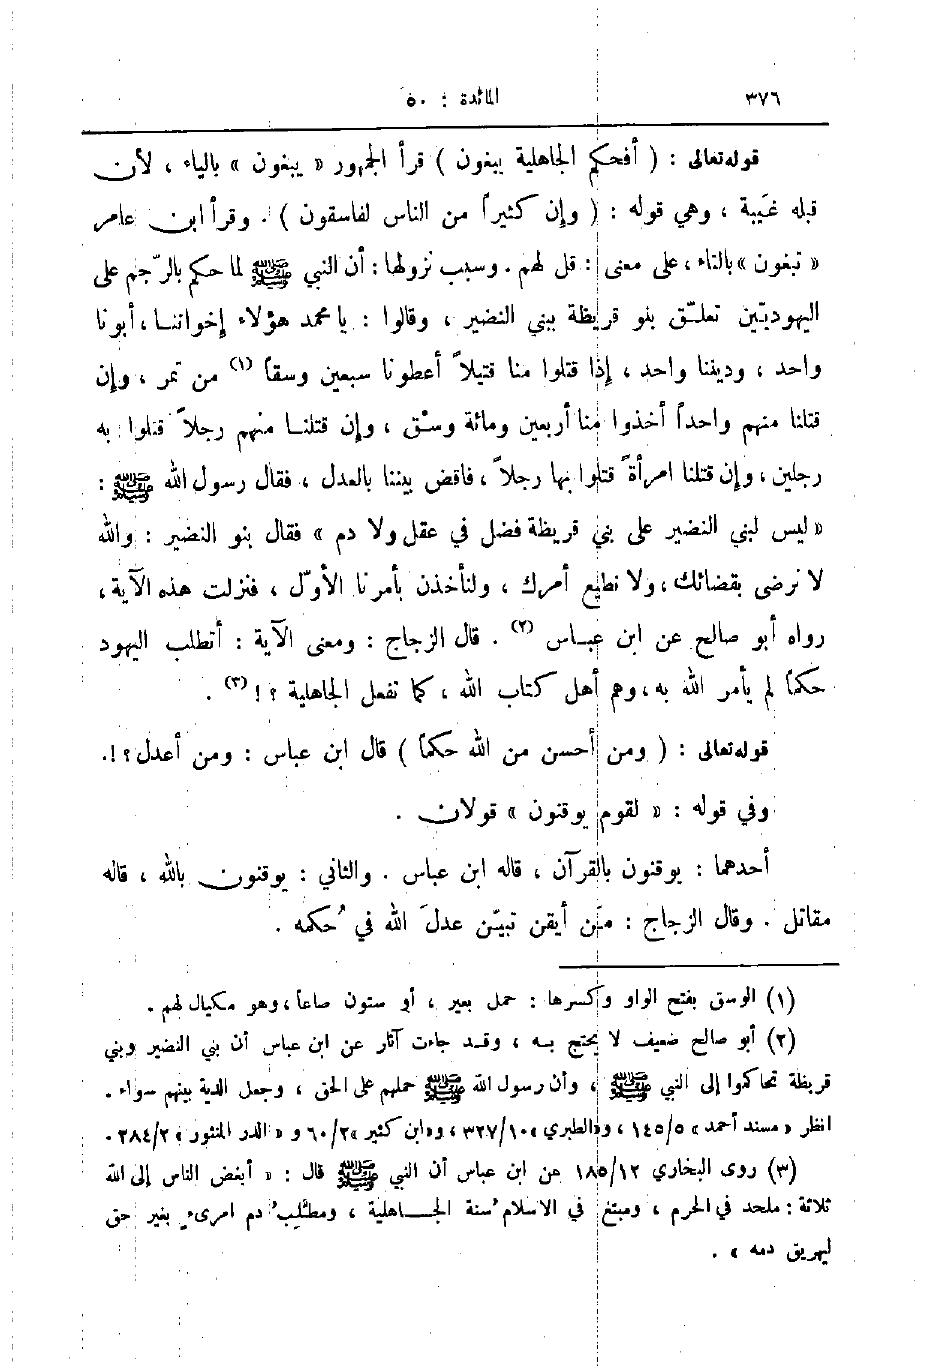 ٣٧٦ المائدة : ٥٠
قوله تعالى : ( أفحكم الجاهلية يبغون ) قرأ الجمهور « يبغون » بالياء ، لأن
قبله غَيبة ، وهي قوله : ( وإن كثيراً من الناس لفاسقون ) . وقرأ ابن عامر
« تبغون » بالتاء ، على معنى : قل لهم . وسبب نزولها : أن النبي ﷺ لما حكم بالرّجم على
اليهوديّين تعلّق بنو قريظة ببني النضير ، وقالوا : يا محمد هؤلاء إخواننا ، أبونا
واحد ، وديننا واحد ، إذا قتلوا منا قتيلاً أعطونا سبعين وسقاً (١) من تمر ، وإن
قتلنا منهم واحداً أخذوا منا أربعين ومائة وسْق ، وإن قتلنا منهم رجلاً قتلوا به
رجلين ، وإن قتلنا امرأةً قتلوا بها رجلاً ، فاقض بيننا بالعدل ، فقال رسول الله ﷺ :
« ليس لبني النضير على بني قريظة فضل في عقل ولا دم » فقال بنو النضير : والله
لا نرضى بقضائك ، ولا نطيع أمرك ، ولنأخذن بأمرنا الأوّل ، فنزلت هذه الآية ،
رواه أبو صالح عن ابن عباس (٢) . قال الزجاج : ومعنى الآية : أتطلب اليهود
حكماً لم يأمر الله به ، وهم أهل كتاب الله ، كما تفعل الجاهلية ؟ ! (٣) .
قوله تعالى : ( ومن أحسن من الله حكماً ) قال ابن عباس : ومن أعدل ؟ ! .
وفي قوله : « لقوم يوقنون » قولان .
أحدهما : يوقنون بالقرآن ، قاله ابن عباس . والثاني : يوقنون بالله ، قاله
مقاتل . وقال الزجاج : مَن أيقن تبيّن عدلَ الله في حُكمه .
(١) الوسق بفتح الواو وكسرها : حمل بعير ، أو ستون صاعاً ، وهو مكيال لهم .
(٢) أبو صالح ضعيف لا يحتج به ، وقد جاءت آثار عن ابن عباس أن بني النضير وبني
قريظة تحاكموا إلى النبي ﷺ ، وأن رسول الله ﷺ حملهم على الحق ، وجعل الدية بينهم سواء .
انظر « مسند أحمد » ١٤٥/٥ ، و« الطبري » ٣٢٧/١٠ ، و« ابن كثير » ٦٠/٢ و « الدر المنثور » ٢٨٤/٢ .
(٣) روى البخاري ١٨٥/١٢ عن ابن عباس أن النبي ﷺ قال : « أبغض الناس إلى الله
ثلاثة : ملحد في الحرم ، ومبتغ في الاسلام سُنة الجاهلية ، ومطَّلِبُ دم امرىءٍ بغير حق
ليهريق دمه » .